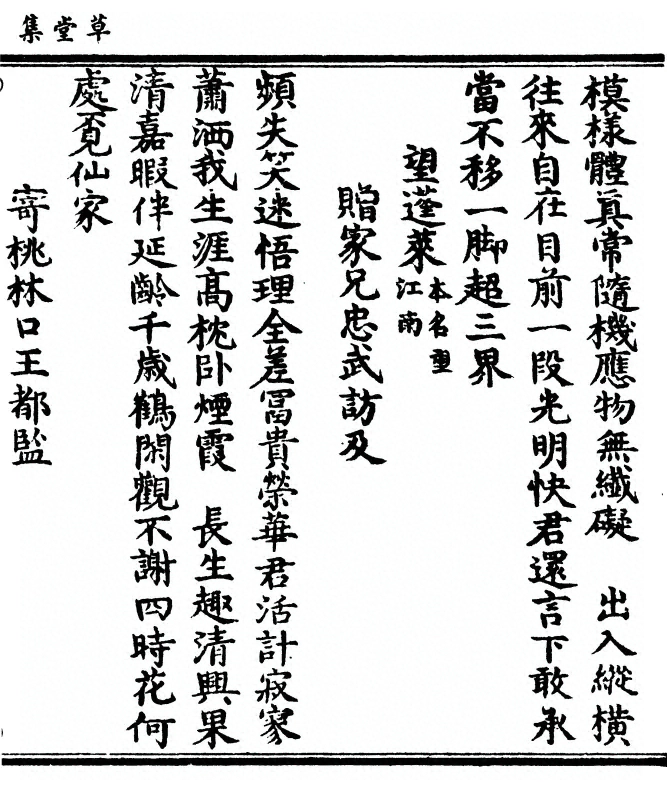 草堂集
模樣體眞常隨機應物無纖礙　出入縱橫
往來自在目前一段光明快君還言下敢承
當不移一脚超三界
望蓬萊本名望江南
贈家兄忠武訪及
頻失笑迷悟理全差冨貴榮華君活計寂寥
蕭洒我生涯高枕卧煙霞　長生趣清興果
清嘉暇伴延齡千歲鶴閑觀不謝四時花何
處覔仙家
寄桃林口王都監